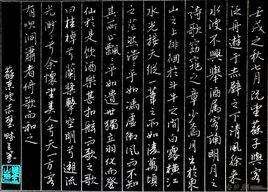 壬戌之秋七月既望蘇子與客
泛舟遊於赤壁之下清風徐來
水波不興舉酒屬客誦明月之
詩歌窈窕之章少焉月出於東
山之上徘徊於斗牛之間白露橫江
水光接天縱一葦之所如凌萬頃
之茫然浩浩乎如馮虛御風而不知
其所止飄飄乎如遺世獨立羽化而登
仙於是飲酒樂甚扣舷而歌之歌
曰桂棹兮蘭槳擊空明兮溯流
光渺渺兮余懷望美人兮天一方客
有吹洞簫者倚歌而和之
蘇軾赤壁賦